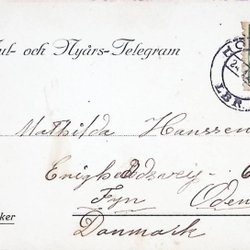 Jul- och Nyårs-Telegram
LBR
Mathilda Hanssen
Enighedsvej
Fyn Oden
Danmark
ker